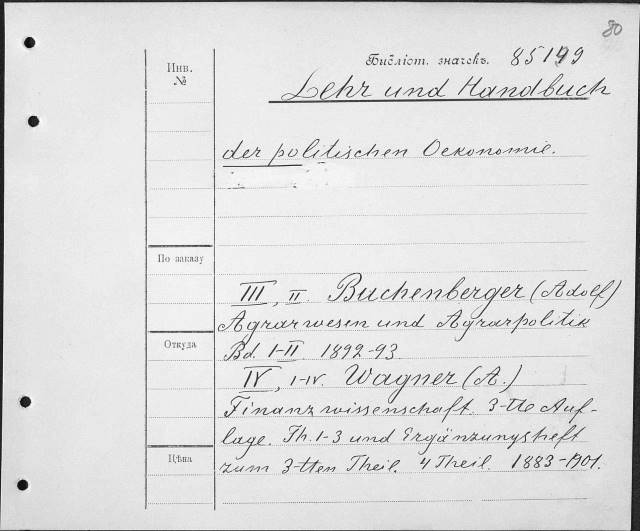 80
Инв.
№
Библіот. значекъ. 85199
Lehr und Handbuch
der politischen Oekonomie.
По заказу
III, II. Buchenberger (Adolf)
Agrarwesen und Agrarpolitik
Откуда
Bd. I-II. 1892-93.
IV, I-IV. Wagner (A.)
Finanzwissenschaft. 3-tte Auf-
lage. Th. 1-3 und Ergänzungsheft
Цѣна
zum 3-tten Theil. 4 Theil. 1883-1901.